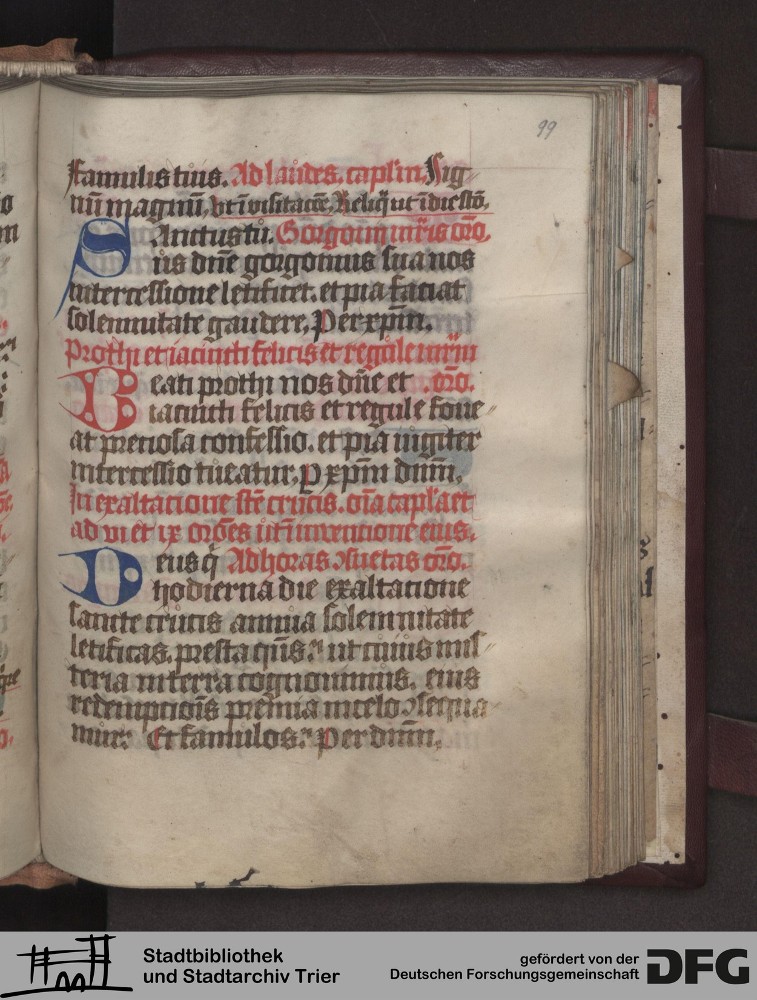 99
Famulis tuis. Ad laudes. capl'm. Sig
nū magnū, vt ī visitacōe, Reliq̄ ut ī die sc̄o,
Anctus tu. Gorgonij mr̄is or̄o,
S us dn̄e gorgonius sua nos
intercessione letificet. et pia faciat
solemnitate gaudere, Per xp̄m.
Prothi et iacincti felicis et regule mr̄m
B eati prothi nos dn̄e et .or̄o.
iacincti felicis et regule foue
at preciosa confessio. et pia iugiter
intercessio tueatur, p xp̄m dn̄m,
In exaltacione sc̄e crucis. oīa capl'a et
ad vi et ix orōes ut ī inuentione eius.
D eus q̄ Ad horas ꝯsuetas or̄o.
hodierna die exaltacione
sancte crucis annua solemnitate
letificas. presta qs̄. ut cuius mis
teria in terra cognouimus. eius
redemptiōis premia in celo ꝯsequa
mur: Et famulos. Per dn̄m,
Stadtbibliothek
und Stadtarchiv Trier
gefördert von der
Deutschen Forschungsgemeinschaft
DFG